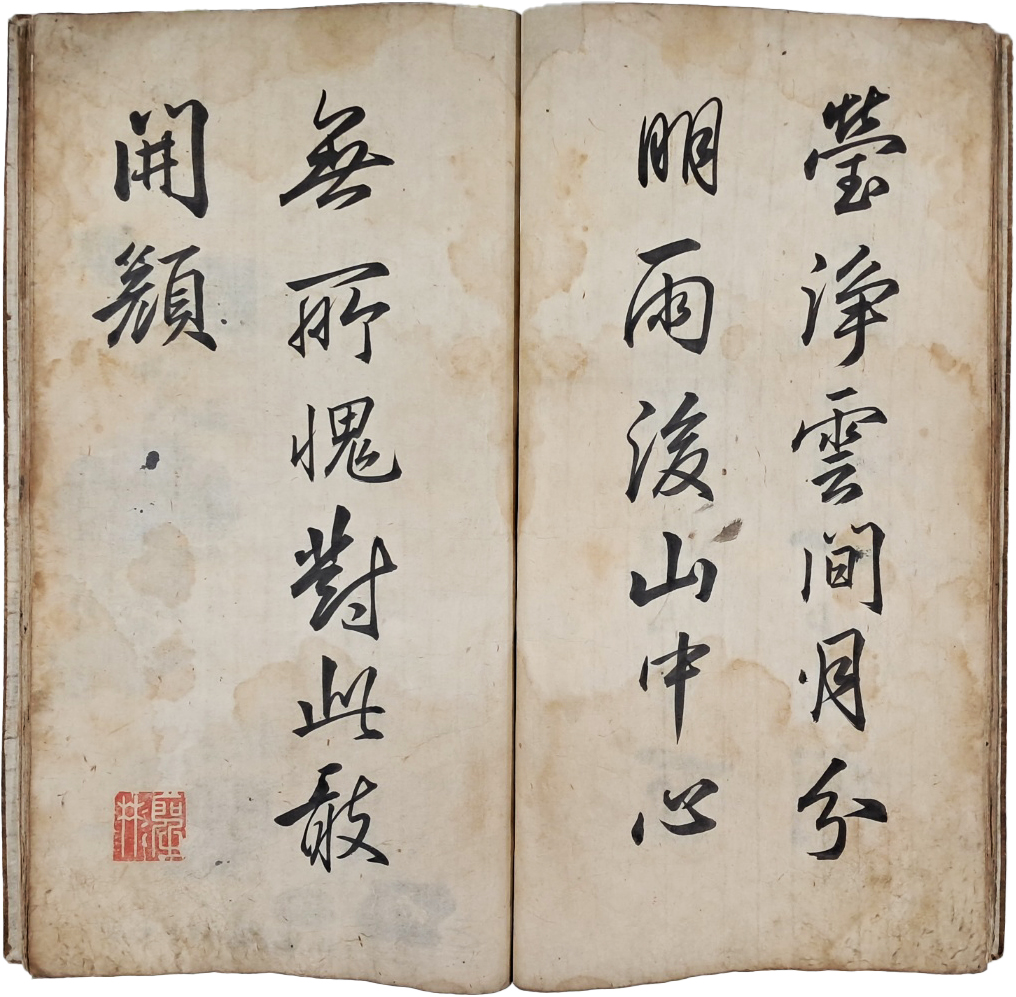 瑩淨雲間月分
明雨後山中心
無所愧對此敢
開顏